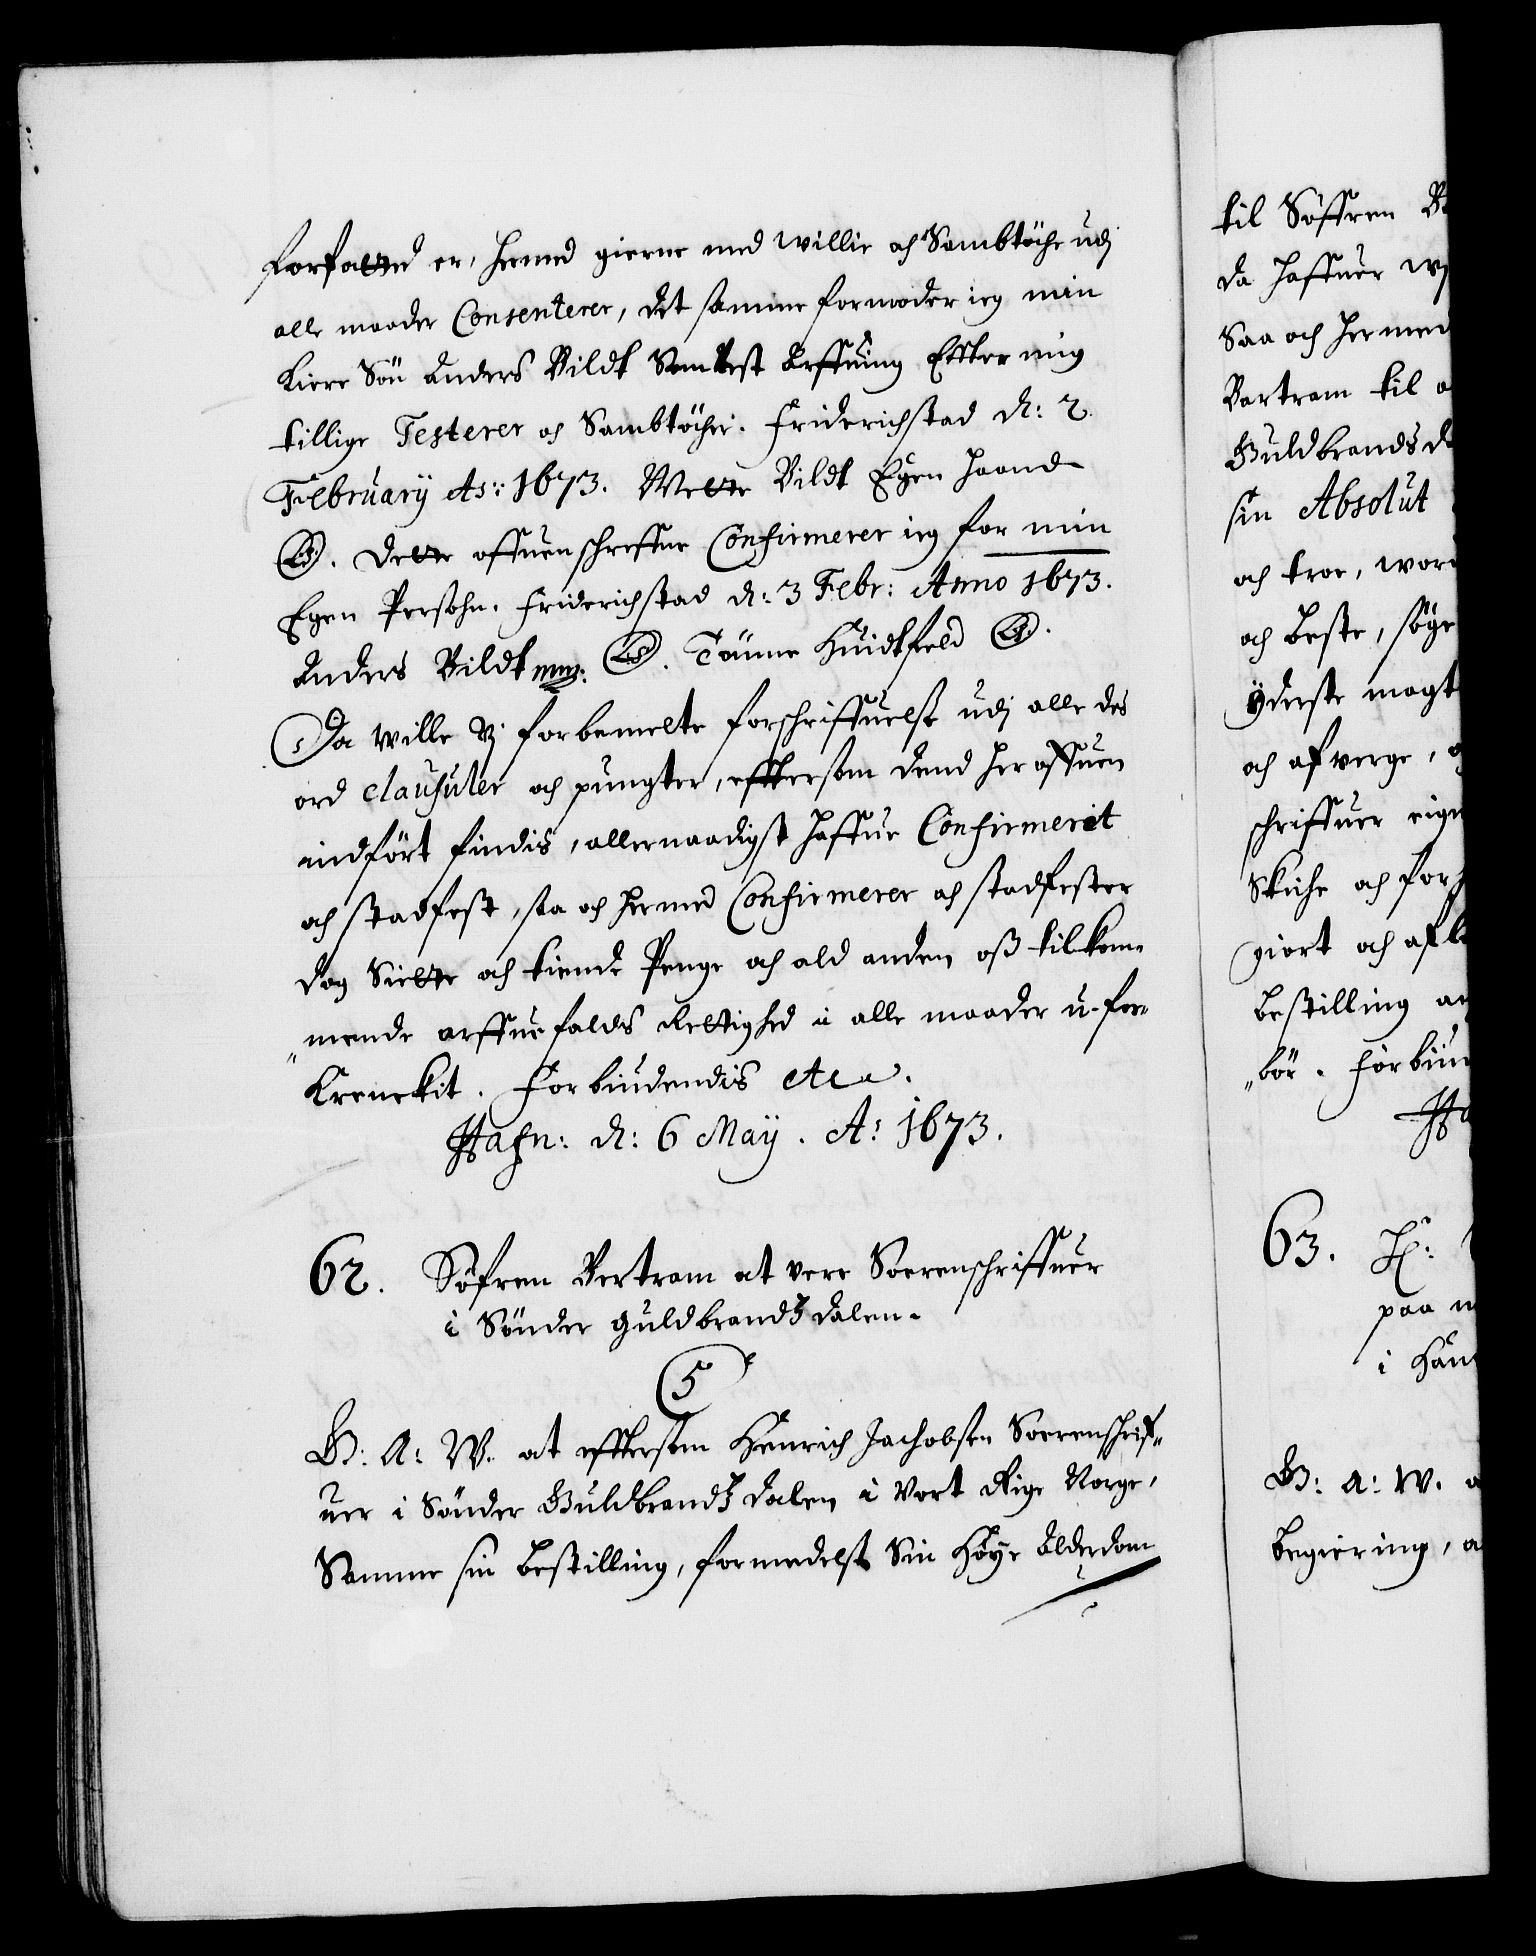 forfatted er, hermed gierne med willie och Sambtöche udj
alle maader Consenterer, det samme formoder ieg min
kiere Sön Anders Bildt Som Nest Arffuing Effter mig
tillige Testerer och Sambtöcher. Friderichstad d: 2.
February Ao: 1673. Mette Bildt Egen haand
LS. Dette offuenschreffne Confirmerer ieg for min
Egen Persohn. Friderichstad d: 3 Febr: Anno 1673.
Anders Bildt mmp: LS. Tönne Huidtfeld LS.
Da wille Vj forbemelte forschriffuelse udj alle des
ord clausuler och pungter, efftersom dend her offuen
indfört findis, allernaadigst haffue Confirmerit
och stadfest, saa och hermed Confirmerer och stadfester
dog Siette och tiende Penge och ald anden oß tilkom-
"mende arffuefalds Rettighed i alle maader u-for-
Krencket. Forbiudendis etc.
Hafn: d: 6 May. Ao 1673.
62. Söfren Bertram at vere Soerenschriffuer
i Sönder Guldbrandz dalen.
5
G: A: W. at effterson Henrich Jachobsen Soerenschrif-
uer i Sönder Guldbrandz dalen i Vort Rige Norge,
Samme sin bestilling, formedelst Sin Höye Alderdom
til Söffren
da haffuer
Saa och hermed
Bartram til
Guldbrands
sin Absolut
och troe,
och beste, söge
yderste magt
och afverge,
schriffuer
Skiche och
giort och
bestilling
"bör.
63.
paa
i
G: A: W.
begiering,